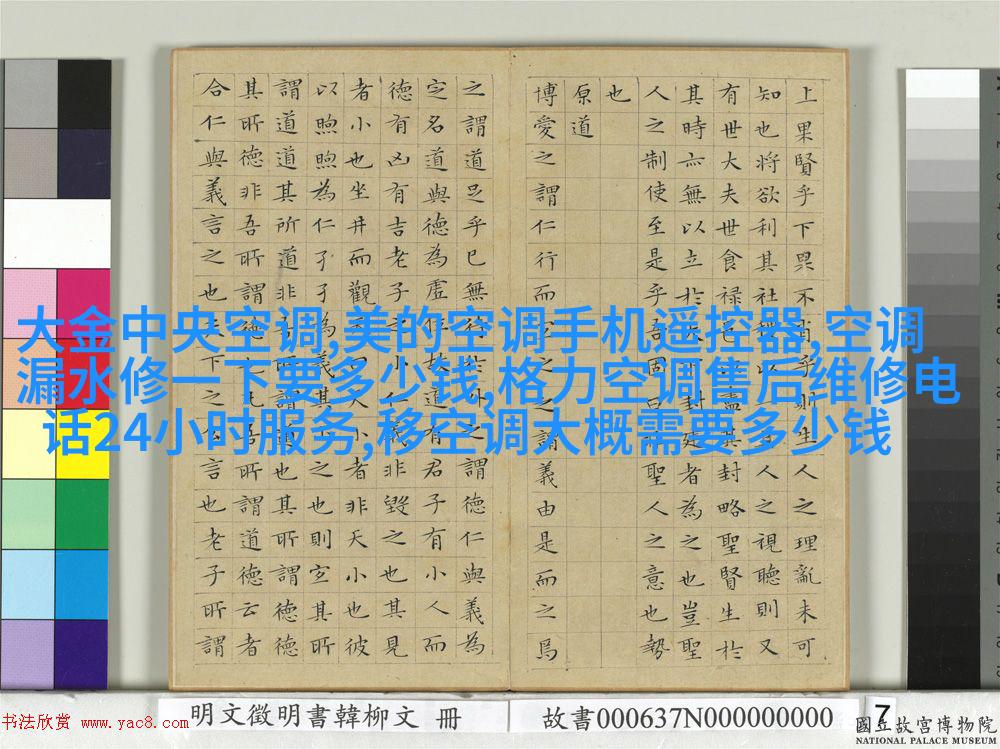 上果賢乎下果不肖乎則生人之理亂未可
知也將欲利其社稷以一其人之視聽則又
有世大夫世食祿邑以盡其封略聖賢生於
其時亦無以立於天下封建者為之也豈聖
人之制使至是乎吾固曰非聖人之意也勢
也
原道
博愛之謂仁行而宜之之謂義由是而之焉
之謂道足乎己無待於外之謂德仁與義為
定名道與德為虛位故道有君子有小人而
德有凶有吉老子之小仁義非毀之也其見
者小也坐井而觀天曰天小者非天小也彼
以煦煦為仁孑孑為義其小之也則宜其所
謂道道其所道非吾所謂道也其所謂德德
其所德非吾所謂德也凡吾所謂道德云者
合仁與義言之也天下之公言也老子所謂
大金中央空调,美的空调手机遥控器,空调
漏水修一下要多少钱,格力空调售后维修电
话24小时服务,移空调大概需要多少钱
明文徵明書韓柳文 冊
故書000637N000000000
7
國立故宮博物院
NATIONAL PALACE MUSEUM
书法欣赏 www.yac8.com